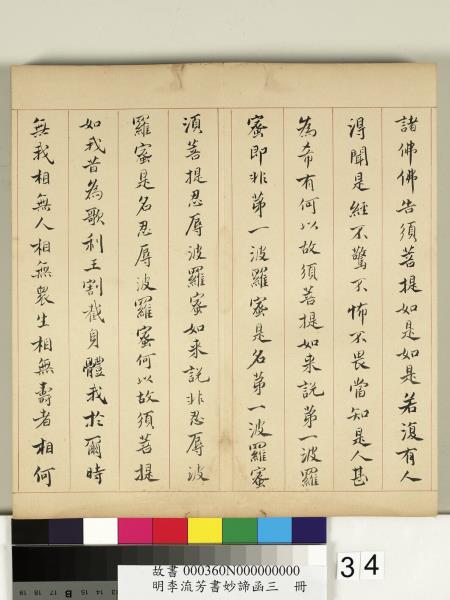 諸佛佛告須菩提如是如是若復有人
得聞是經不驚不怖不畏當知是人甚
為希有何以故須菩提如來說第一波羅
蜜即非第一波羅蜜是名第一波羅蜜
須菩提忍辱波羅蜜如来說非忍辱波
羅蜜是名忍辱波羅蜜何以故須菩提
如我昔為歌利王割截身體我於爾時
無我相無人相無衆生相無壽者相何
故書 000360N000000000
明李流芳書妙諦函三 冊
34